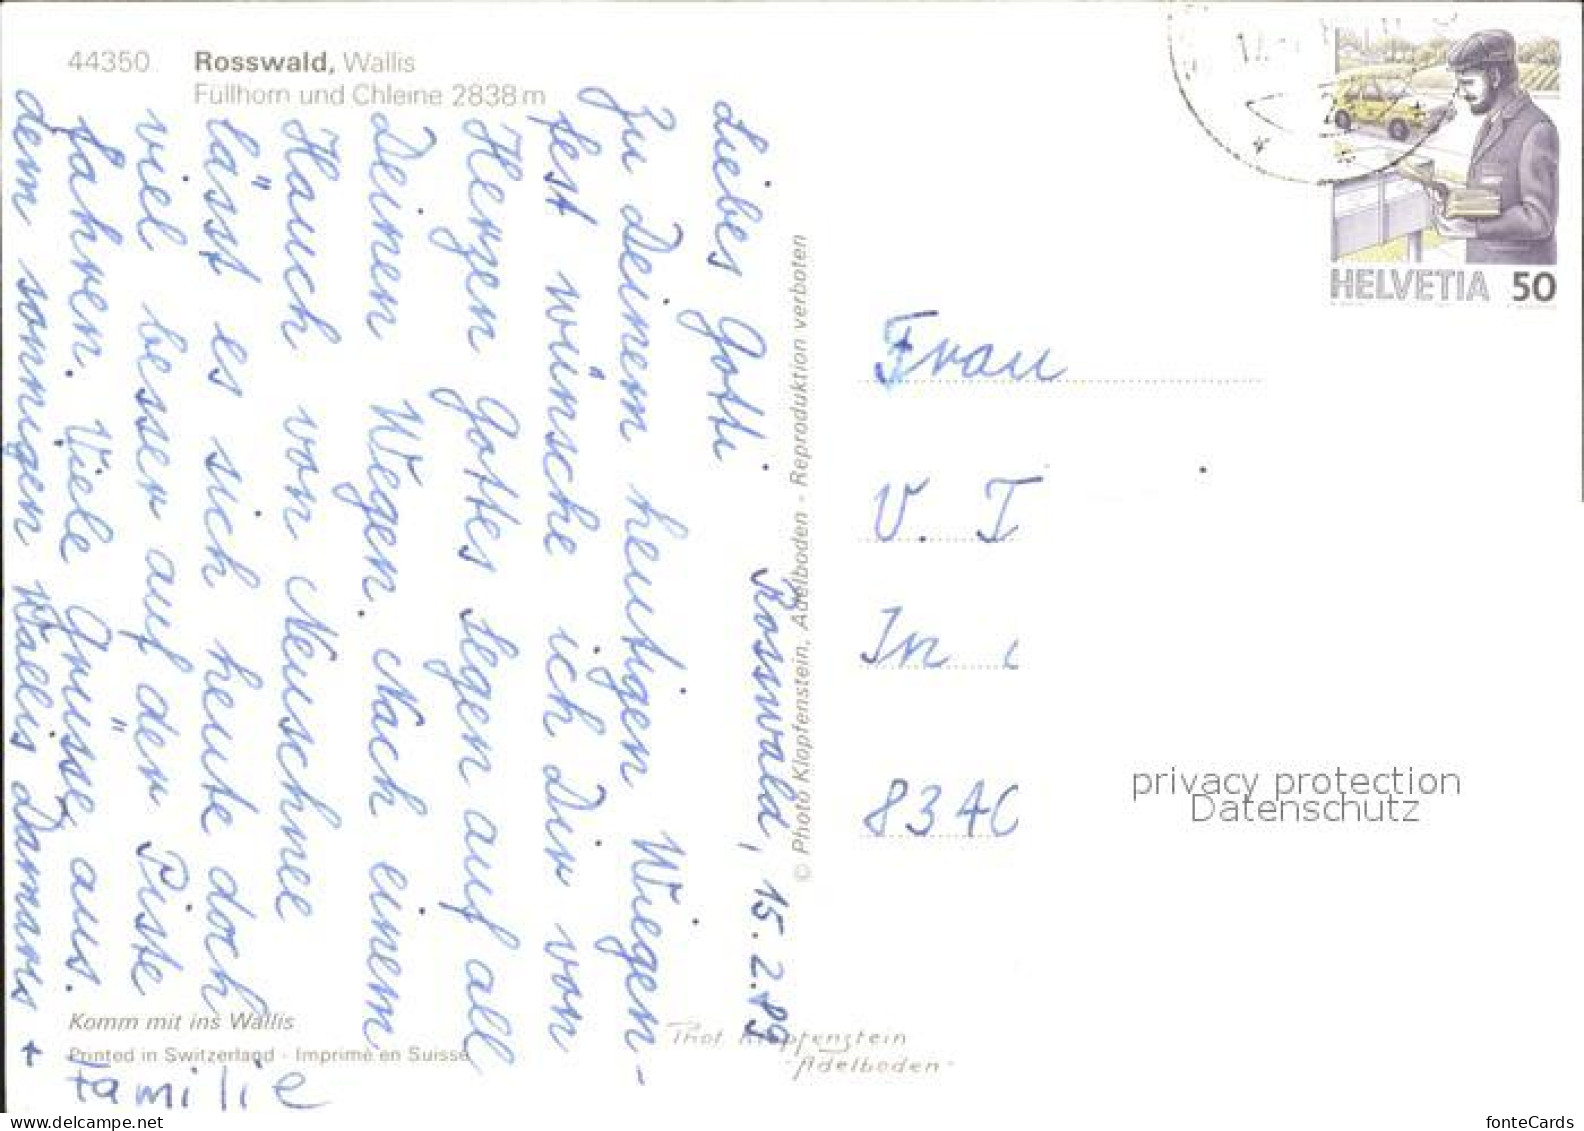 44350 Rosswald, Wallis
Füllhorn und Chleine 2838 m
Rosswald, 15.2.89
Liebes Gotti
Zu Deinem heutigen Wiegen-
fest wünsche ich Dir von
Herzen Gottes Segen auf all
Deinen Wegen. Nach einem
Hauch von Neuschnee
lässt es sich heute doch
viel besser auf der Piste
fahren. Viele Grüsse aus
dem sonnigen Wallis Damaris +
Familie
© Photo Klopfenstein, Adelboden - Reproduktion verboten
Komm mit ins Wallis
Printed in Switzerland - Imprimé en Suisse
Phot. Klopfenstein
- Adelboden -
HELVETIA 50
Frau
V. T
In
8340
privacy protection
Datenschutz
www.delcampe.net
fonteCards